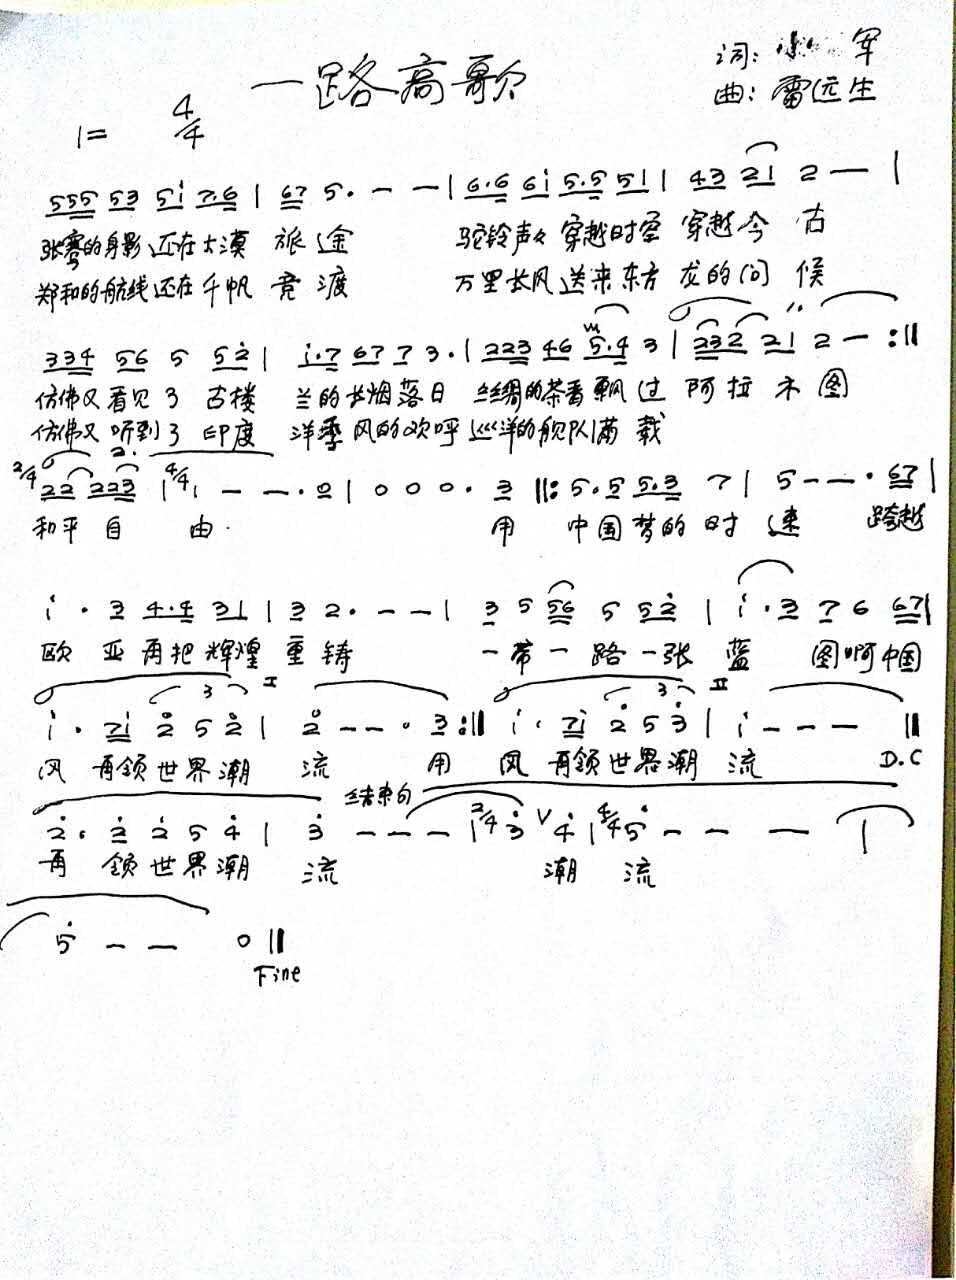 一路高歌
词: 军
曲: 雷远生
1= 4/4
555 53 5i 7.6 | 67 5. — — | 6.6 6i 5.5 51 | 43 21 2 — |
张骞的身影还在大漠 旅途 驼铃声声穿越时空 穿越今古
郑和的航线还在千帆竞渡 万里长风送来东方龙的问候
334 56 5 52 | i.7 67 7 3. | 223 46 5.4 3 | 232 21 2 — :||
仿佛又看见了古楼兰的长烟落日 丝绸的茶香飘过阿拉木图
仿佛又听到了印度洋季风的欢呼巡洋的舰队满载
2/4 22 223 | 4/4 1 — — . 0 | 0 0 0 . 3 ||: 5.5 5.3 7 | 5 — — . 67 |
和平自由. 用中国梦的时速 跨越
i . 3 4.4 31 | 3 2. — — | 3 5 56 5 52 | i . 3 7 6 67 |
欧亚再把辉煌重铸 一带一路一张蓝图啊中国
i . 7i 2 5 2 | 2 — — . 3 :|| i . 7i 2 5 3 | i — — — ||
风再领世界潮流 用 风再领世界潮流 D.C
结束句
2 . 2 2 5 4 | 3 — — — | 2/4 3 V 4 | 4/4 5 — — — |
再领世界潮流 潮流
5 — — 0 ||
Fine